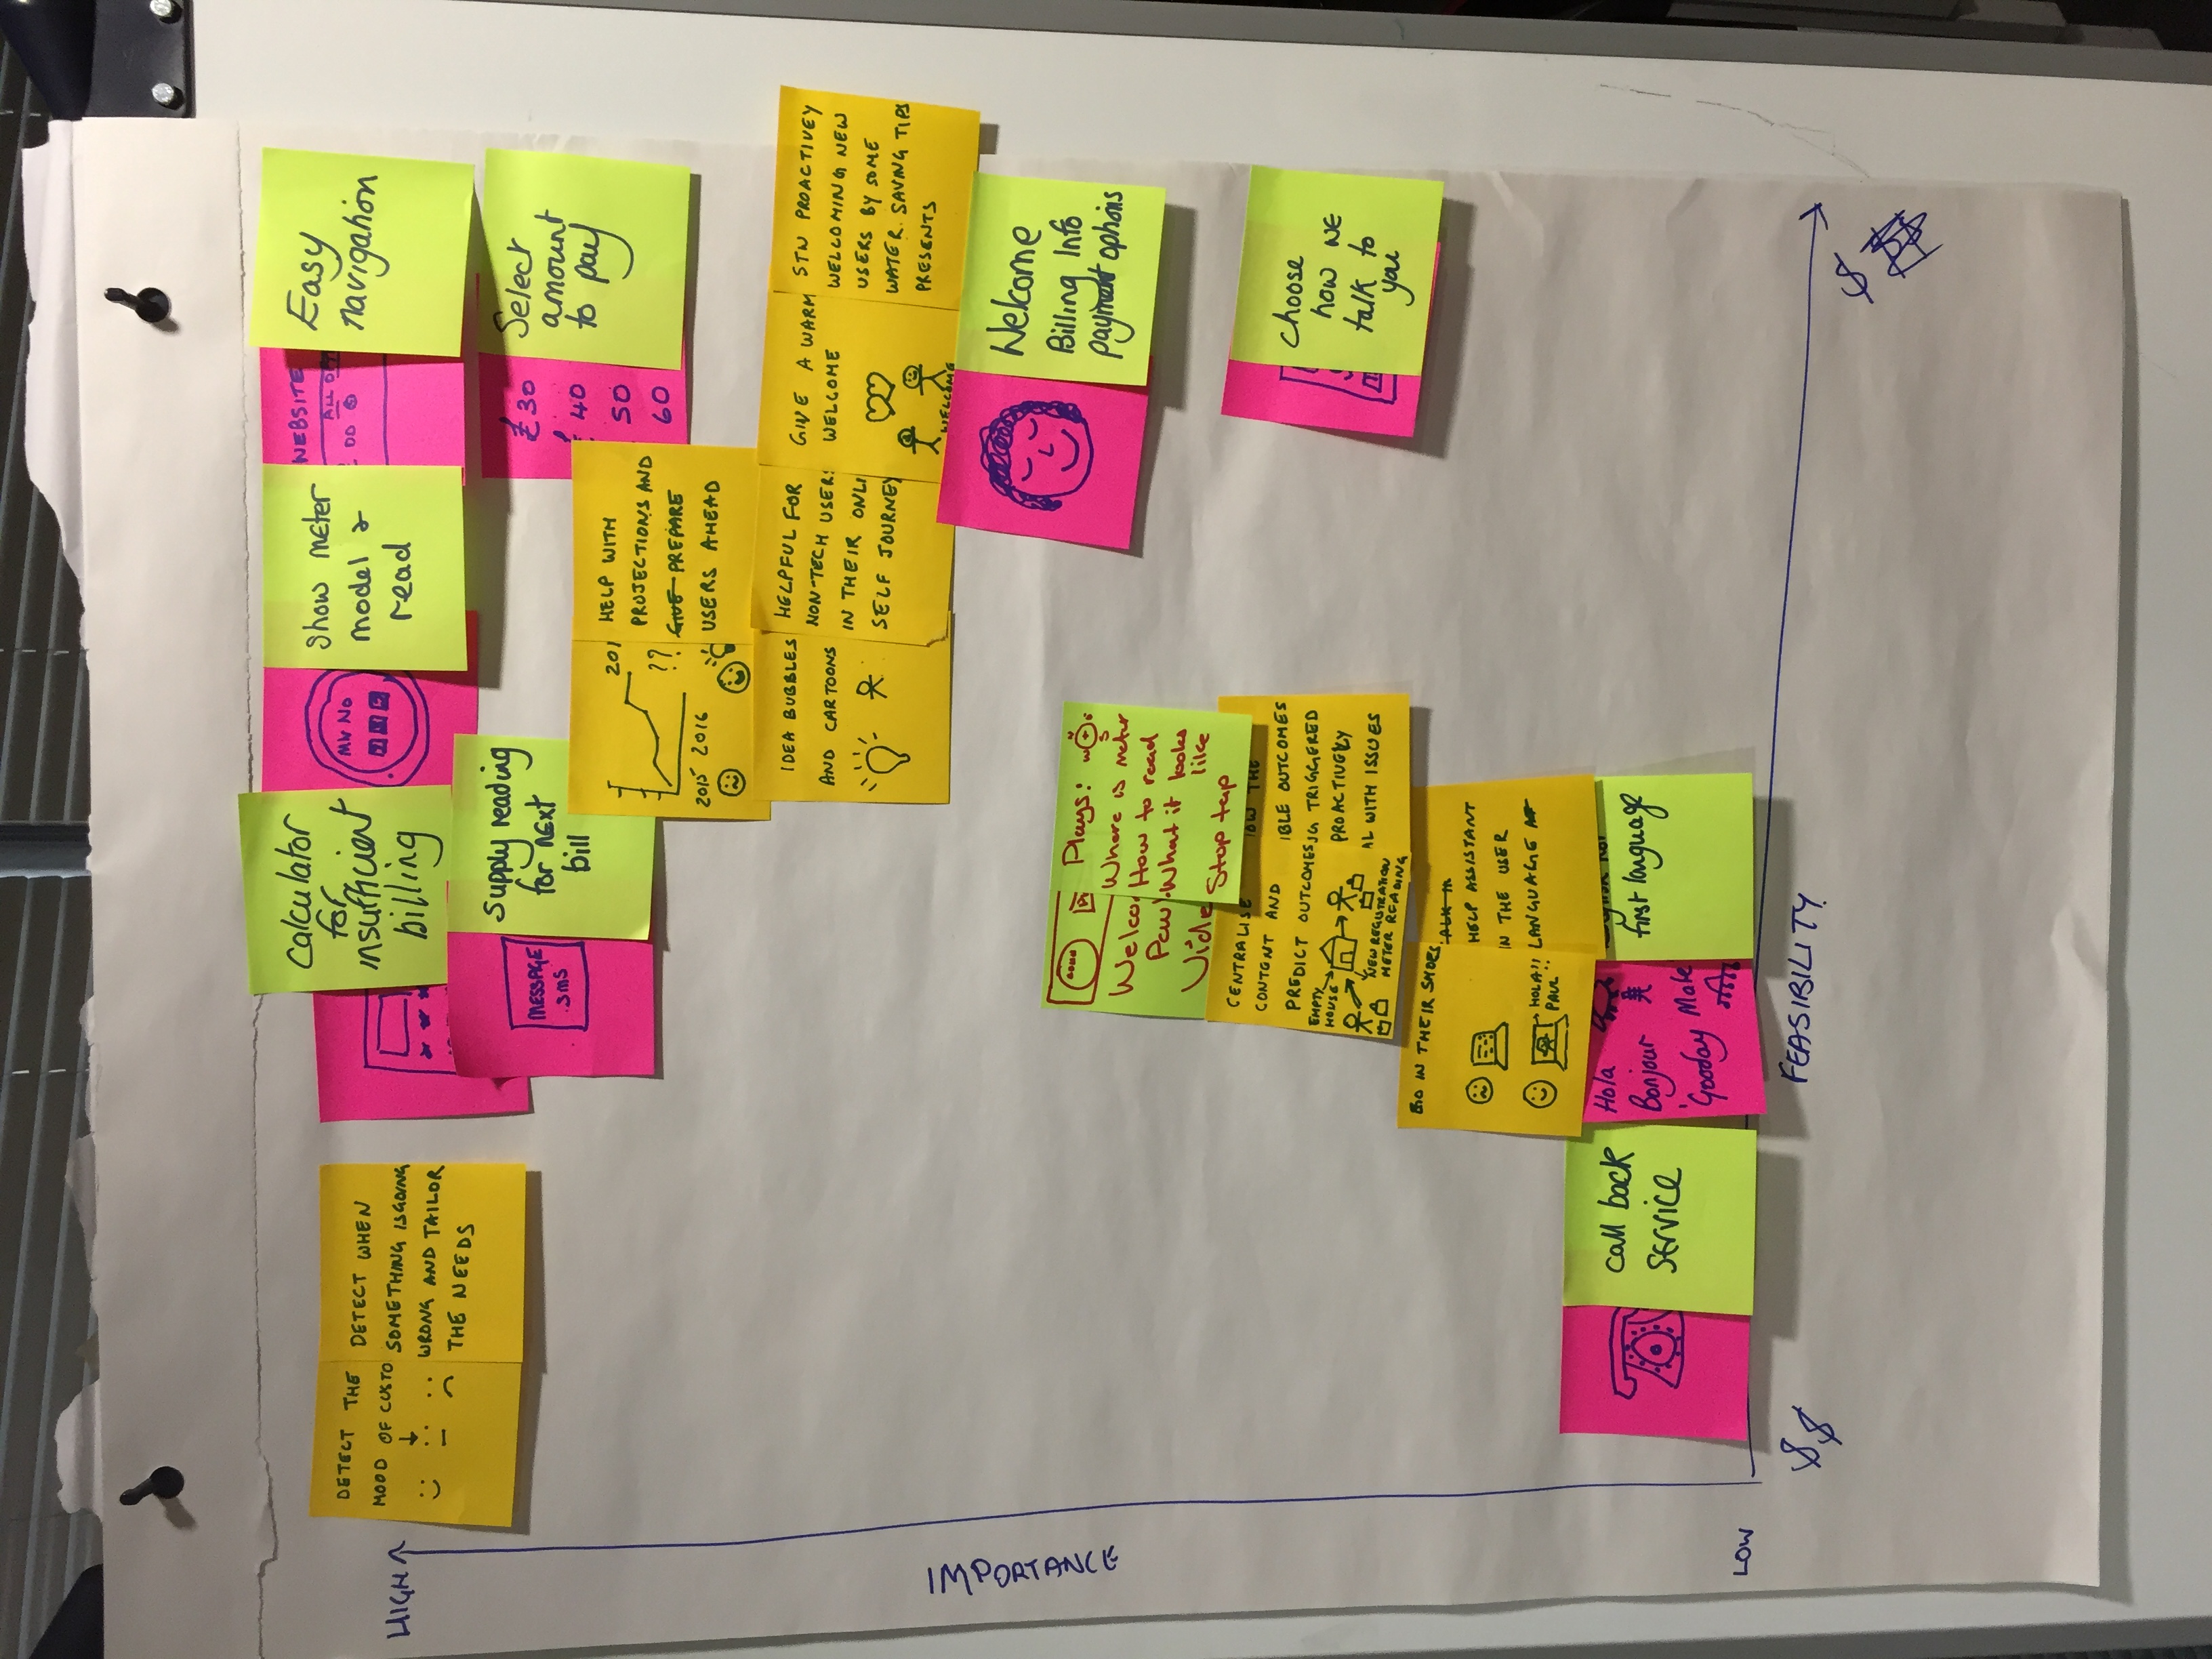 HIGH
IMPORTANCE
LOW
$$
FEASIBILITY
$
DETECT THE
MOOD OF CUSTO
DETECT WHEN
SOMETHING IS GOING
WRONG AND TAILOR
THE NEEDS
Calculator
for
insufficient
billing
No
Show meter
model &
read
WEBSITE
ALL
DD
Easy
navigation
MESSAGE
SMS
Supply reading
for next
bill
£30
£ 40
50
60
Select
amount
to pay
201
??
2015 2016
HELP WITH
PROJECTIONS AND
GIVE PREPARE
USERS AHEAD
IDEA BUBBLES
AND CARTOONS
HELPFUL FOR
NON-TECH USERS
IN THEIR ONLI
SELF JOURNEY
GIVE A WARM
WELCOME
WELCOME
STW PROACTIVEY
WELCOMING NEW
USERS BY SOME
WATER SAVING TIPS
PRESENTS
Welcome
Billing Info
payment options
Welco
Paul
Vide
Plays:
Where is meter
How to read
What it looks
like
Stop tap
CENTRALISE
CONTENT AND
PREDICT OUTCOMES
EMPTY
HOUSE
NEW REGISTRATION
METER READING
OW THE
IBLE OUTCOMES
G TRIGGERED
PROACTIVELY
AL WITH ISSUES
Choose
how we
talk to
you
GO IN THEIR SHOES
HOLA!!
PAUL
ALK IN
HELP ASSISTANT
IN THE USER
LANGUAGE
Call back
service
Hola
Bonjour
'Gooday Mate
first language